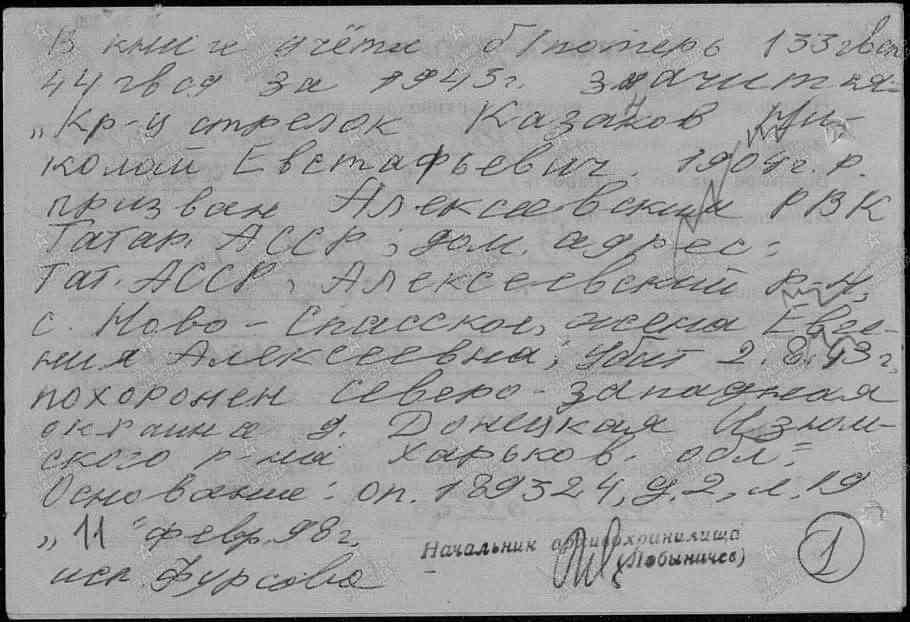 В книге учёта б/потерь 133 гвсп
44 гвсд за 1943г. значится:
„Кр-ц стрелок Казаков Ни-
колай Евстафьевич. 1904г. р.
призван Алексеевским РВК
Татар. АССР; дом. адрес:
Тат. АССР, Алексеевский р-н,
с. Ново-Спасское, жена Евге-
ния Алексеевна; убит 2.8.43г,
похоронен северо-западная
окраина д. Донецкая Изюм-
ского р-на Харьков. обл."
Основание: оп. 189324, д.2, л.19
„11" февр. 98г.
исп Фурсова
Начальник архивохранилища
(Лобыничев)
1